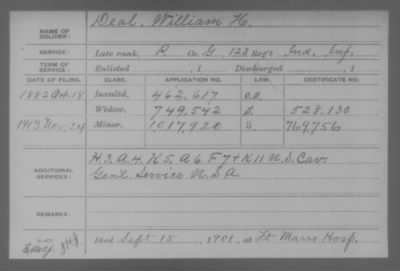 NAME OF SOLDIER: Deal, William H.
SERVICE: Late rank, P Co. G, 123 Reg't Ind. Inf.
TERM OF SERVICE: Enlisted , 1 Discharged , 1
DATE OF FILING. CLASS. APPLICATION NO. LAW. CERTIFICATE NO.
1882 Oct. 18 Invalid, 462,617
Widow, 749,542 528,130
1913 Nov. 24 Minor, 1,017,920 769756
ADDITIONAL SERVICES: H 3, A 4, K 5, A 6, F 7 & K 11 U.S. Cav.
Genl. Service U.S.A.
REMARKS:
Died Sept 15, 1901, at Ft Hosp.